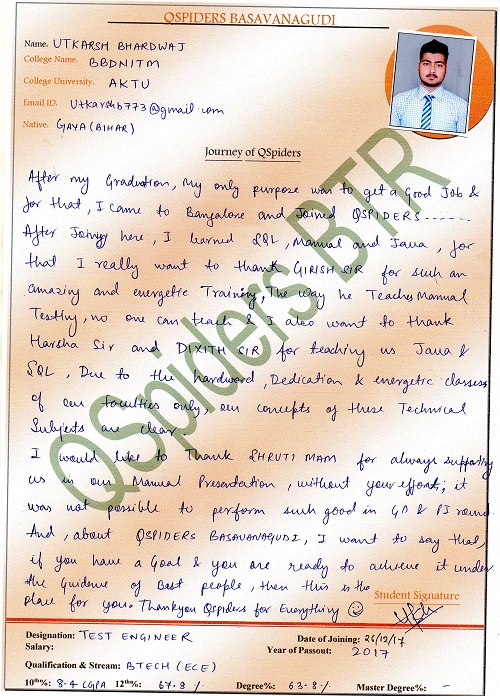 QSPIDERS BASAVANAGUDI
Name. UTKARSH BHARDWAJ
College Name. BBDNITM
College University. AKTU
Email ID. Utkarshb773@gmail.com
Native. GAYA (BIHAR)
Journey of QSpiders
After my Graduation, My only purpose was to get a Good Job &
for that, I came to Bangalore and Joined QSPIDERS ------
After Joinyg here, I learned SQL, Manual and Java, for
that I really want to thank GIRISH SIR for such an
amazing and energetic Training, The way he Teaches Manual
Testing, no one can teach & I also want to thank
Harsha Sir and DIXITH SIR for teaching us Java &
SQL, Due to the hardword, Dedication & energetic classes
of our faculties only, our concepts of these Technical
Subjects are clear.
I would like to Thank SHRUTI MAM for always supporting
us in our Manual Presentation, without your efforts, it
was not possible to perform such good in GD & PI round.
And, about QSPIDERS BASAVANAGUDI, I want to say that,
if you have a Goal & you are ready to achieve it under
the Guidence of Best people, then this is the
place for you. Thankyou Qspiders for Everything ☺
Student Signature
QSpiders BTR
Designation: TEST ENGINEER Date of Joining: 26/12/17
Salary: Year of Passout: 2017
Qualification & Stream: BTECH (ECE)
10th%: 8.4 CGPA 12th%: 67.8 % Degree%: 63.8 % Master Degree%: -